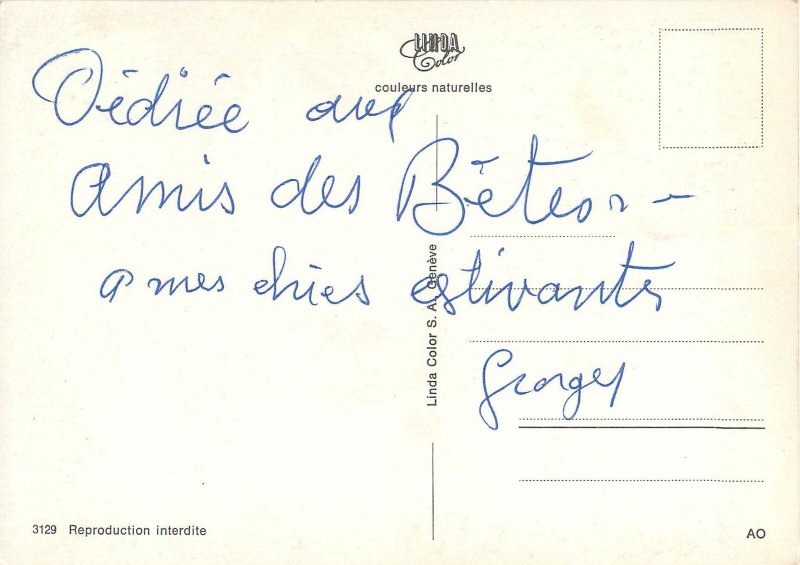 LINDA
Color
couleurs naturelles
Dédiée aux
Amis des Bêtes
a mes chies estivants
Georges
Linda Color S. A. Genève
3129 Reproduction interdite
AO